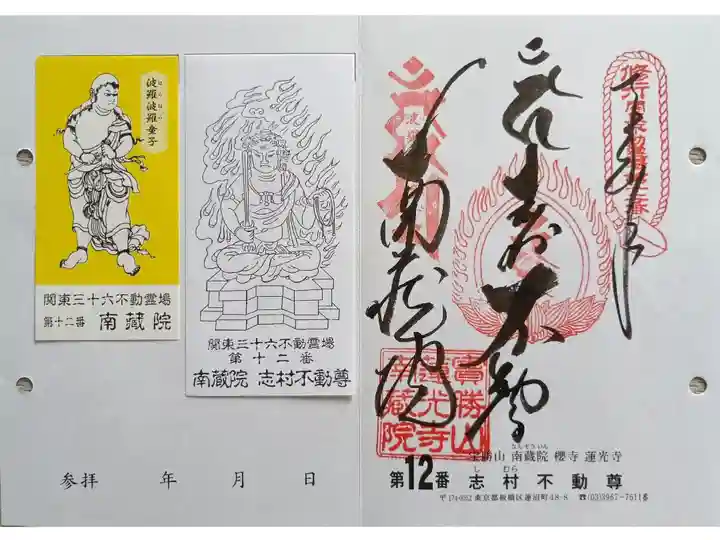 波羅波羅童子
はらはらどうじ
関東三十六不動霊場
第十二番 南蔵院
関東三十六不動霊場
第十二番
南蔵院 志村不動尊
参拝 年 月 日
南蔵院
寶勝山
蓮光寺
南蔵院
なんぞういん
宝勝山 南蔵院 櫻寺 蓮光寺
しむら
第12番 志村不動尊
〒174-0052 東京都板橋区蓮沼町48-8 ☎(03)3967-7611番